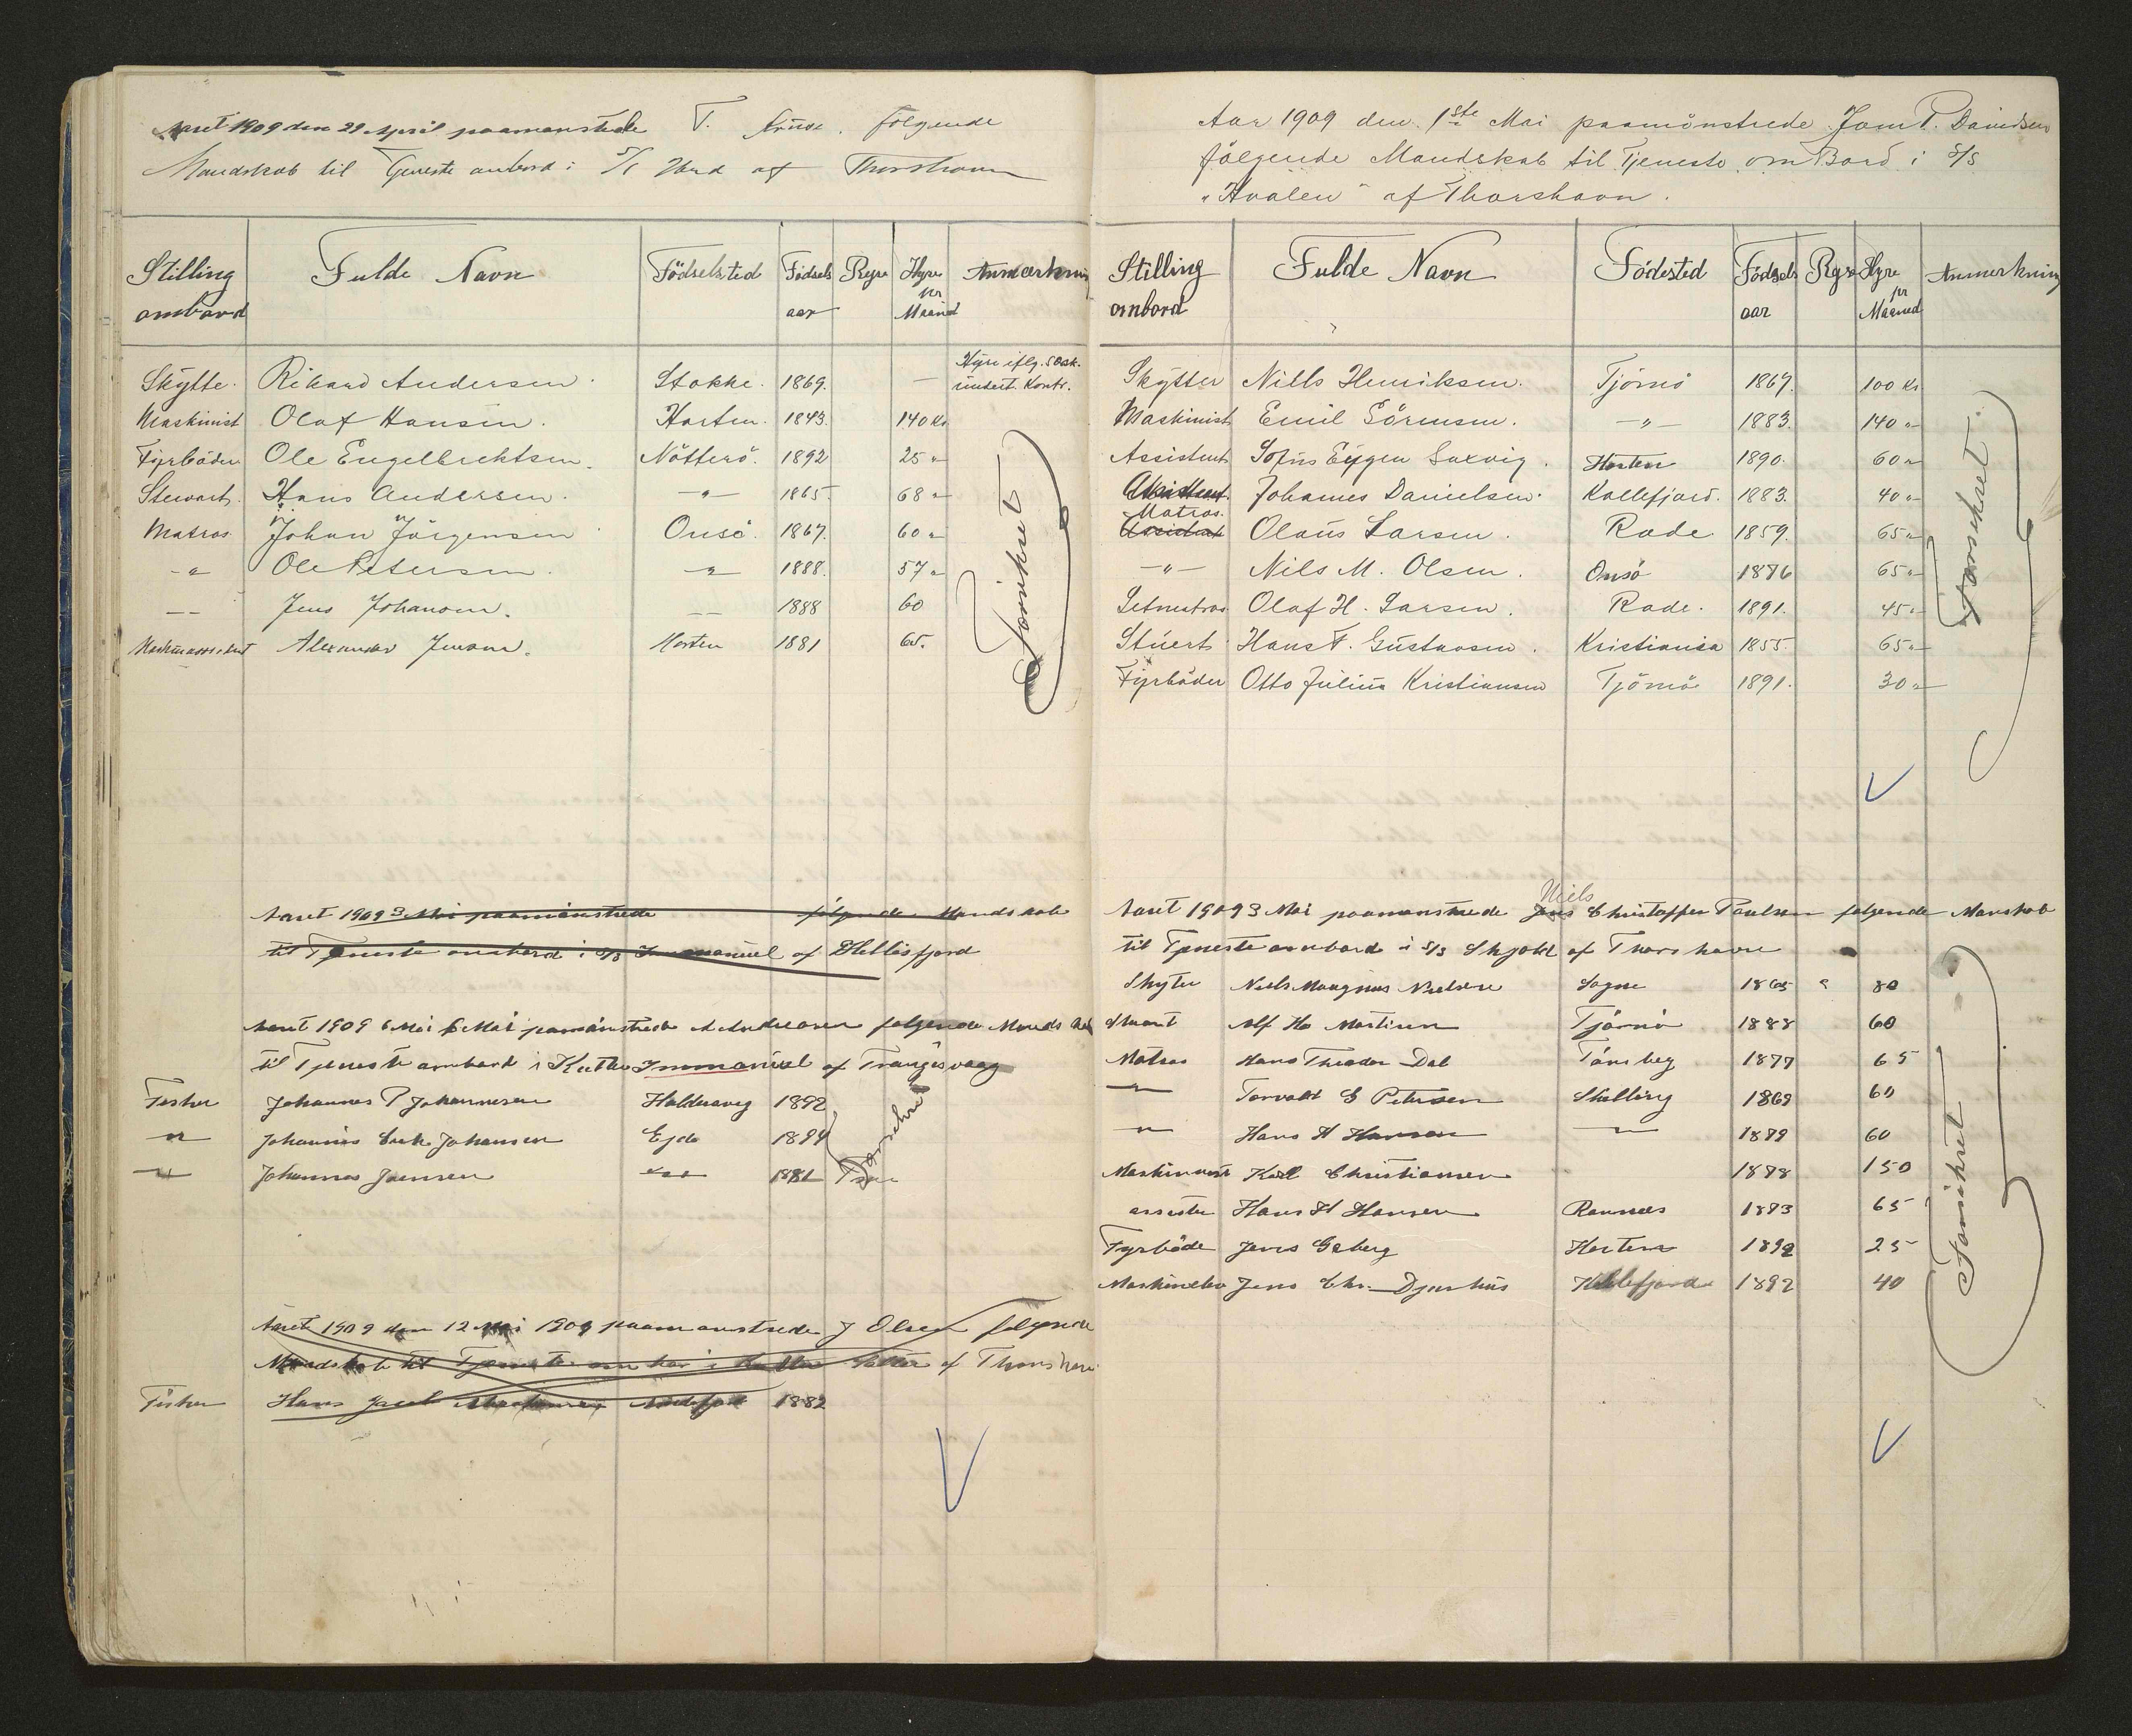 Aaret 1909 den 29 April paamønstrede T. følgende
Mandskab til Tjeneste ombord i S/S af Thorshavn
Stilling ombord Fulde Navn Födselssted Födsels aar Reyse Hyre pr Maaned Anmærkning
Skytte. Rikard Andersen. Stokke. 1869. — Hyre iflg. Kontr.
Maskinist Olaf Hansen. Horten. 1843. 140 Kr
Fyrböder Ole Engelbrektsen. Nötterö. 1892 25 "
Stewart. Hans Andersen. —"— 1865. 68 "
Matros. Johan Jörgensen Onsö. 1867. 60 "
—"— Ole Petersen. —"— 1888. 57 "
—— Jens Johansen. —— 1888 60
Maskinassistent Alexander Jensen. Horten 1881 65.
Forsikret
Aaret 1909 3 Mai paamönstrede følgende Mandskab
til Tjeneste ombord i S/S Immanuel af
Aaret 1909 6 Mai 6 Mai paamönstrede A Andreasen følgende Mandskab
til Tjeneste ombord i Kutter Immanuel af Trangisvaag
Fisker Johannes P Johannesen Haldersvig 1892
—"— Johannes Johansen Ejde 1894
—"— Johannes Joensen —"— 1881
Aaret 1909 den 12 Mai 1909 paamønstrede J Olsen følgende
Mandskab til Tjeneste ombor i Kutter af Thorshavn
Fisker Hans Jacob 1882
Aar 1909 den 1ste Mai paamönstrede Joen P. Davidsen
fölgende Mandskab til Tjeneste om Bord i S/S
"Hvalen" af Thorshavn.
Stilling ombord Fulde Navn Födested Födsels aar Reyse Hyre pr Maaned Anmerkning
Skytter Niels Henriksen. Tjömö 1867. 100 Kr
Maskinist Emil Sörensen. —"— 1883. 140 "
Assistent Sofus Eugen Saxvig. Horten 1890. 60 "
Assistent. Johannes Danielsen. Kollefjord. 1883. 40 "
Matros.
Assistent Olaus Larsen. Rade 1859. 65 "
—"— Nils M. Olsen. Onsö 1876 65 "
Letmatros Olaf H. Larsen. Rade. 1891. 45 "
Stuert Hans F. Gustavsen. Kristiania 1855. 65 "
Fyrböder Otto Julius Kristiansen Tjömö 1891. 30 "
Forsikret
Niels
Aaret 1909 3 Mai paamønstrede Jens Christoffer Poulsen følgende Manskab
til Tjeneste ombord i S/S Skjold af Thorshavn
Skyter Niels Magnus Nielsen Sogne 1865 80
Stuart Alf Ho Martisen Tjömö 1888 60
Matros Hans Theodor Dal Tönsberg 1877 65
—"— Torvald G Petersen 1869 60
—"— Hans H Hansen —"— 1889 60
Maskinnist Karl Christiansen 1878 150
assister Hans H Hansen Ramnæs 1893 65
Fyrböde Jens Geberg Horten 1892 25
Maskinelev Jens Chr. Djurhus Kollefjord 1892 40
Forsikret